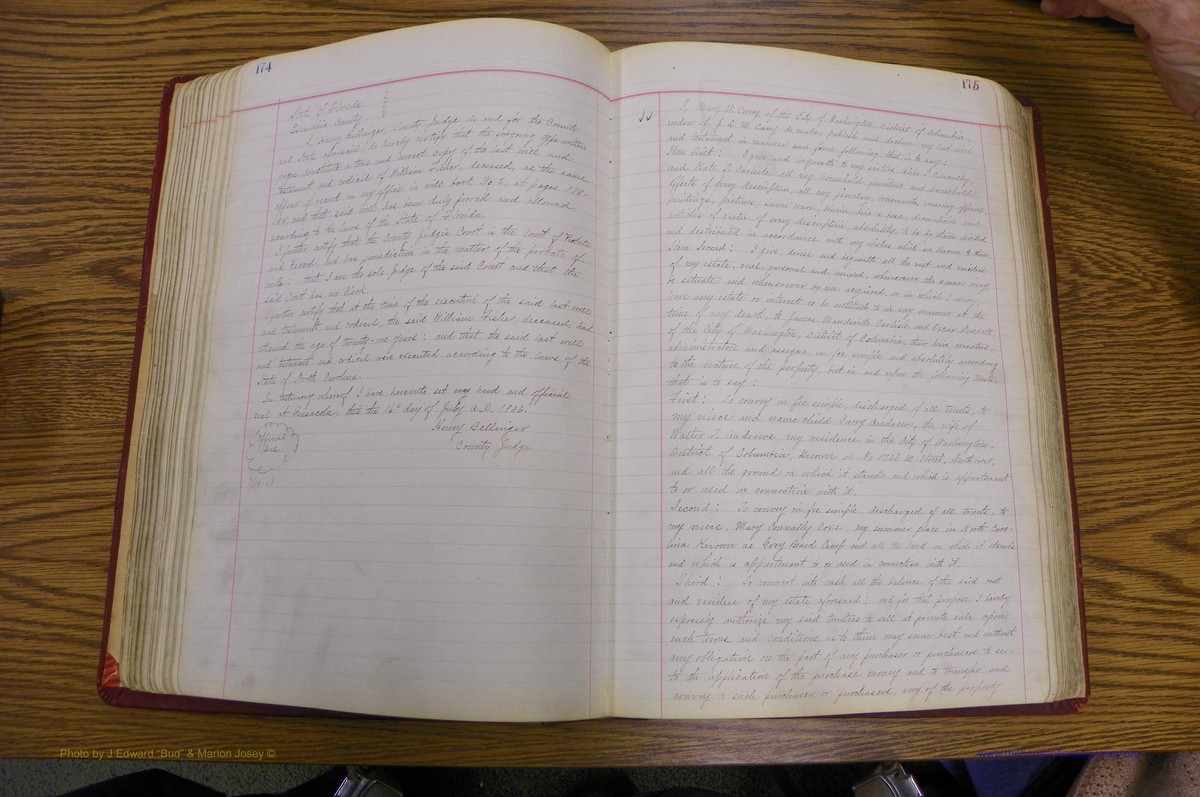 174
State of Florida
Escambia County
I, Henry Bellinger, County Judge in and for the County
and State aforesaid, do hereby certify that the foregoing
pages constitute a true and correct copy of the last will and
testament and codicil of William Fisher, deceased, as the same
appear of record in my office in will book No 2, at pages 178-
and that said will has been duly proved and allowed
according to the laws of the State of Florida.
I further certify that the County Judge's Court is the Court of Probate
and Record, and has jurisdiction in the matter of the probate of
wills: that I am the sole Judge of the said Court and that the
said Court has no Clerk.
I further certify that at the time of the execution of the said last will
and testament and codicil, the said William Fisher, deceased, had
attained the age of twenty-one years: and that the said last will
and testament and codicil were executed according to the laws of the
State of North Carolina.
In testimony whereof I have hereunto set my hand and official
seal at Pensacola, this the 16th day of July A.D. 1906.
Henry Bellinger
County Judge
Official
Seal
175
I, Mary W. Curry of the City of Washington, District of Columbia,
widow of J. L. M. Curry do make, publish and declare my last will
and testament in manner and form following, that is to say:
Item First: I give and bequeath to my sisters
and Kate F. Carlisle all my household furniture and household
effects of every description, all my jewelry, ornaments, wearing apparel,
paintings, pictures, silver ware, china, and
articles of virtu of every description, absolutely, to be by them divided
and distributed in accordance with my wishes which are known to them
Item Second: I give, devise and bequeath all the rest and residue
of my estate, real, personal and mixed, wheresoever the same may
be situate and whensoever by me acquired, or in which I may
have any estate or interest or be entitled to in any manner at the
time of my death, to Mandeville Carlisle and Oscar Luckett,
of the City of Washington, District of Columbia, their heirs, executors,
administrators and assigns in fee simple and absolutely according
to the nature of the property, but in and upon the following trusts
that is to say:
First: To convey in fee simple, discharged of all trusts, to
my niece and name child Curry Andrews, the wife of
Walter Andrews, my residence in the City of Washington,
District of Columbia, known as No 1736 M. Street, Northwest,
and all the ground on which it stands and which is appurtenant
to or used in connection with it.
Second: To convey in fee simple, discharged of all trusts, to
my niece, Mary Connally Coxe, my summer place in North Caro-
lina known as Grey Beard Camp and all the land on which it stands
and which is appurtenant to or used in connection with it.
Third: To convert into cash all the balance of the said rest
and residue of my estate aforesaid: and for that purpose I hereby
expressly authorize my said trustees to sell at private sale upon
such terms and conditions as to them may seem best and without
any obligation on the part of any purchaser or purchasers to see
to the application of the purchase money and to transfer and
convey to such purchaser or purchasers, any of the property
Photo by J Edward "Bud" & Marion Josey ©